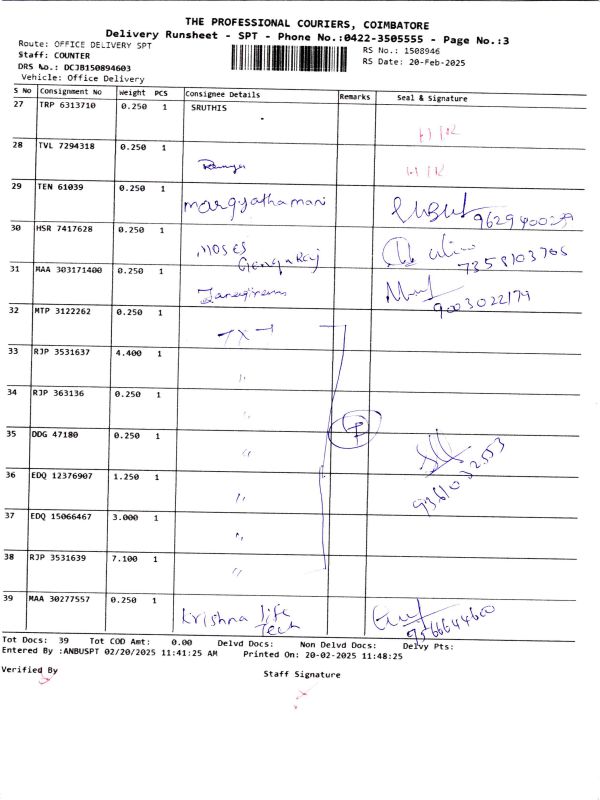 THE PROFESSIONAL COURIERS, COIMBATORE
Delivery Runsheet - SPT - Phone No.:0422-3505555 - Page No.:3
Route: OFFICE DELIVERY SPT
RS No.: 1508946
Staff: COUNTER
RS Date: 20-Feb-2025
DRS No.: DCJB150894603
Vehicle: Office Delivery
S No Consignment No Weight PCS Consignee Details Remarks Seal & Signature
27 TRP 6313710 0.250 1 SRUTHIS
H/K
28 TVL 7294318 0.250 1
H/K
29 TEN 61039 0.250 1 margyathamani
30 HSR 7417628 0.250 1 MOSES
7358103706
31 MAA 303171400 0.250 1
9003022174
32 MTP 3122262 0.250 1
33 RJP 3531637 4.400 1 "
34 RJP 363136 0.250 1 "
35 DDG 47180 0.250 1 "
36 EDQ 12376907 1.250 1 "
37 EDQ 15066467 3.000 1 "
38 RJP 3531639 7.100 1 "
39 MAA 30277557 0.250 1 krishna life
Tech 9566644600
Tot Docs: 39 Tot COD Amt: 0.00 Delvd Docs: Non Delvd Docs: Delvy Pts:
Entered By :ANBUSPT 02/20/2025 11:41:25 AM Printed On: 20-02-2025 11:48:25
Verified By
Staff Signature